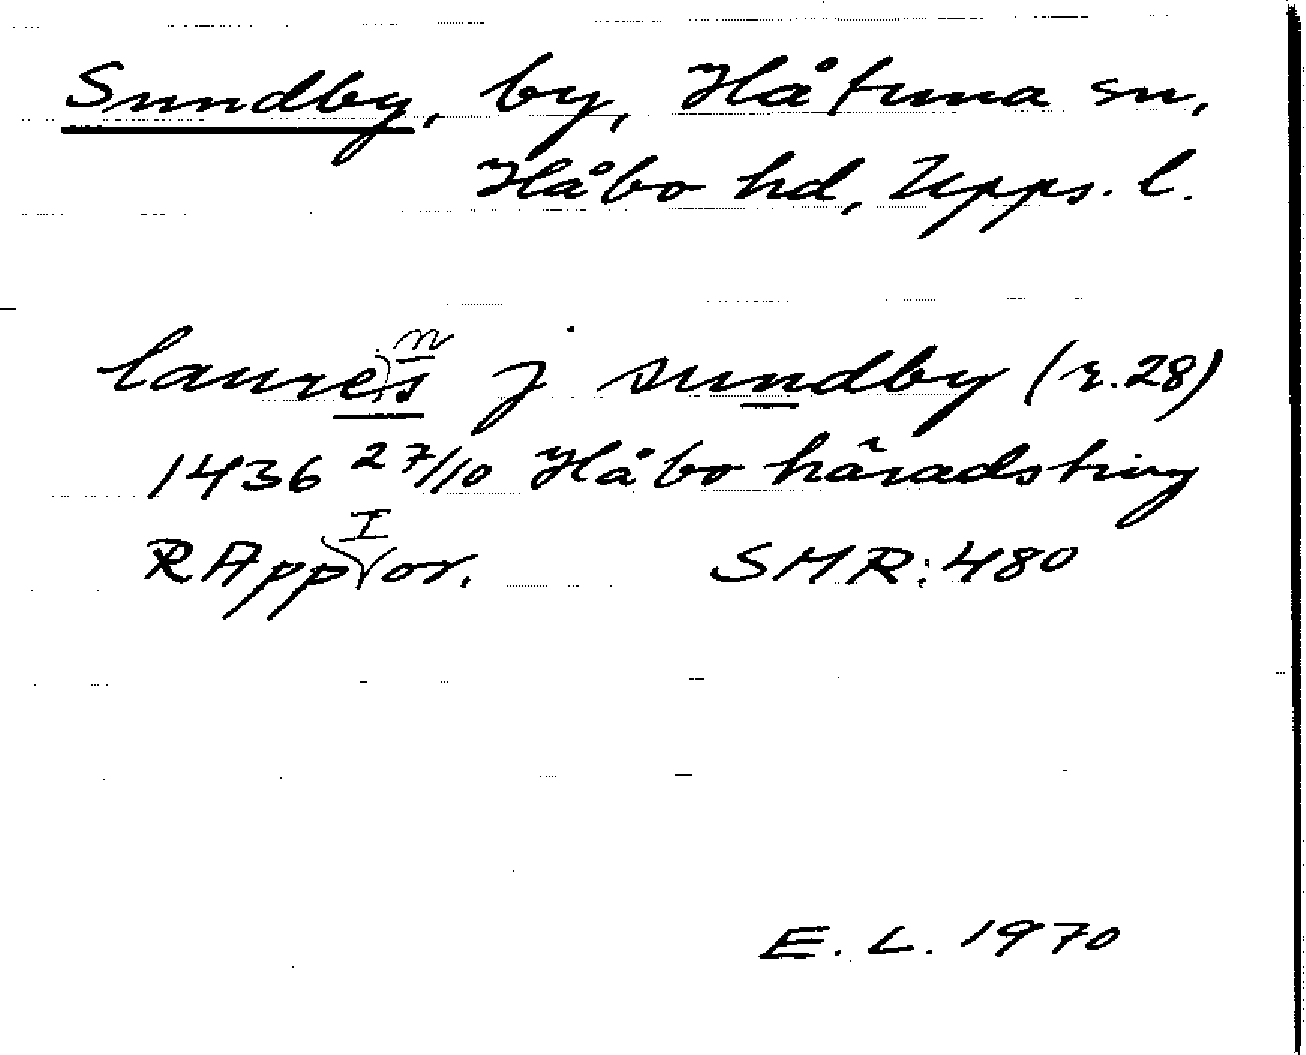 Sundby, by, Håtuna sn,
Håbo hd, Upps. l.
laurens j sundby (r. 28)
1436 27/10 Håbo häradsting
RAppI or. SMR: 480
E. L. 1970